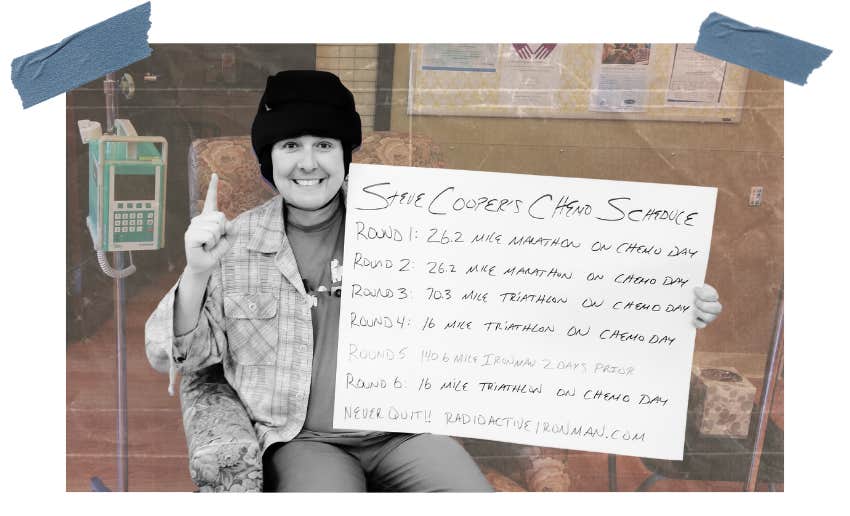 STEVE COOPER'S CHEMO SCHEDULE
ROUND 1: 26.2 MILE MARATHON ON CHEMO DAY
ROUND 2: 26.2 MILE MARATHON ON CHEMO DAY
ROUND 3: 70.3 MILE TRIATHLON ON CHEMO DAY
ROUND 4: 16 MILE TRIATHLON ON CHEMO DAY
ROUND 5 140.6 MILE IRONMAN 2 DAYS PRIOR
ROUND 6: 16 MILE TRIATHLON ON CHEMO DAY
NEVER QUIT!! RADIOACTIVEIRONMAN.COM